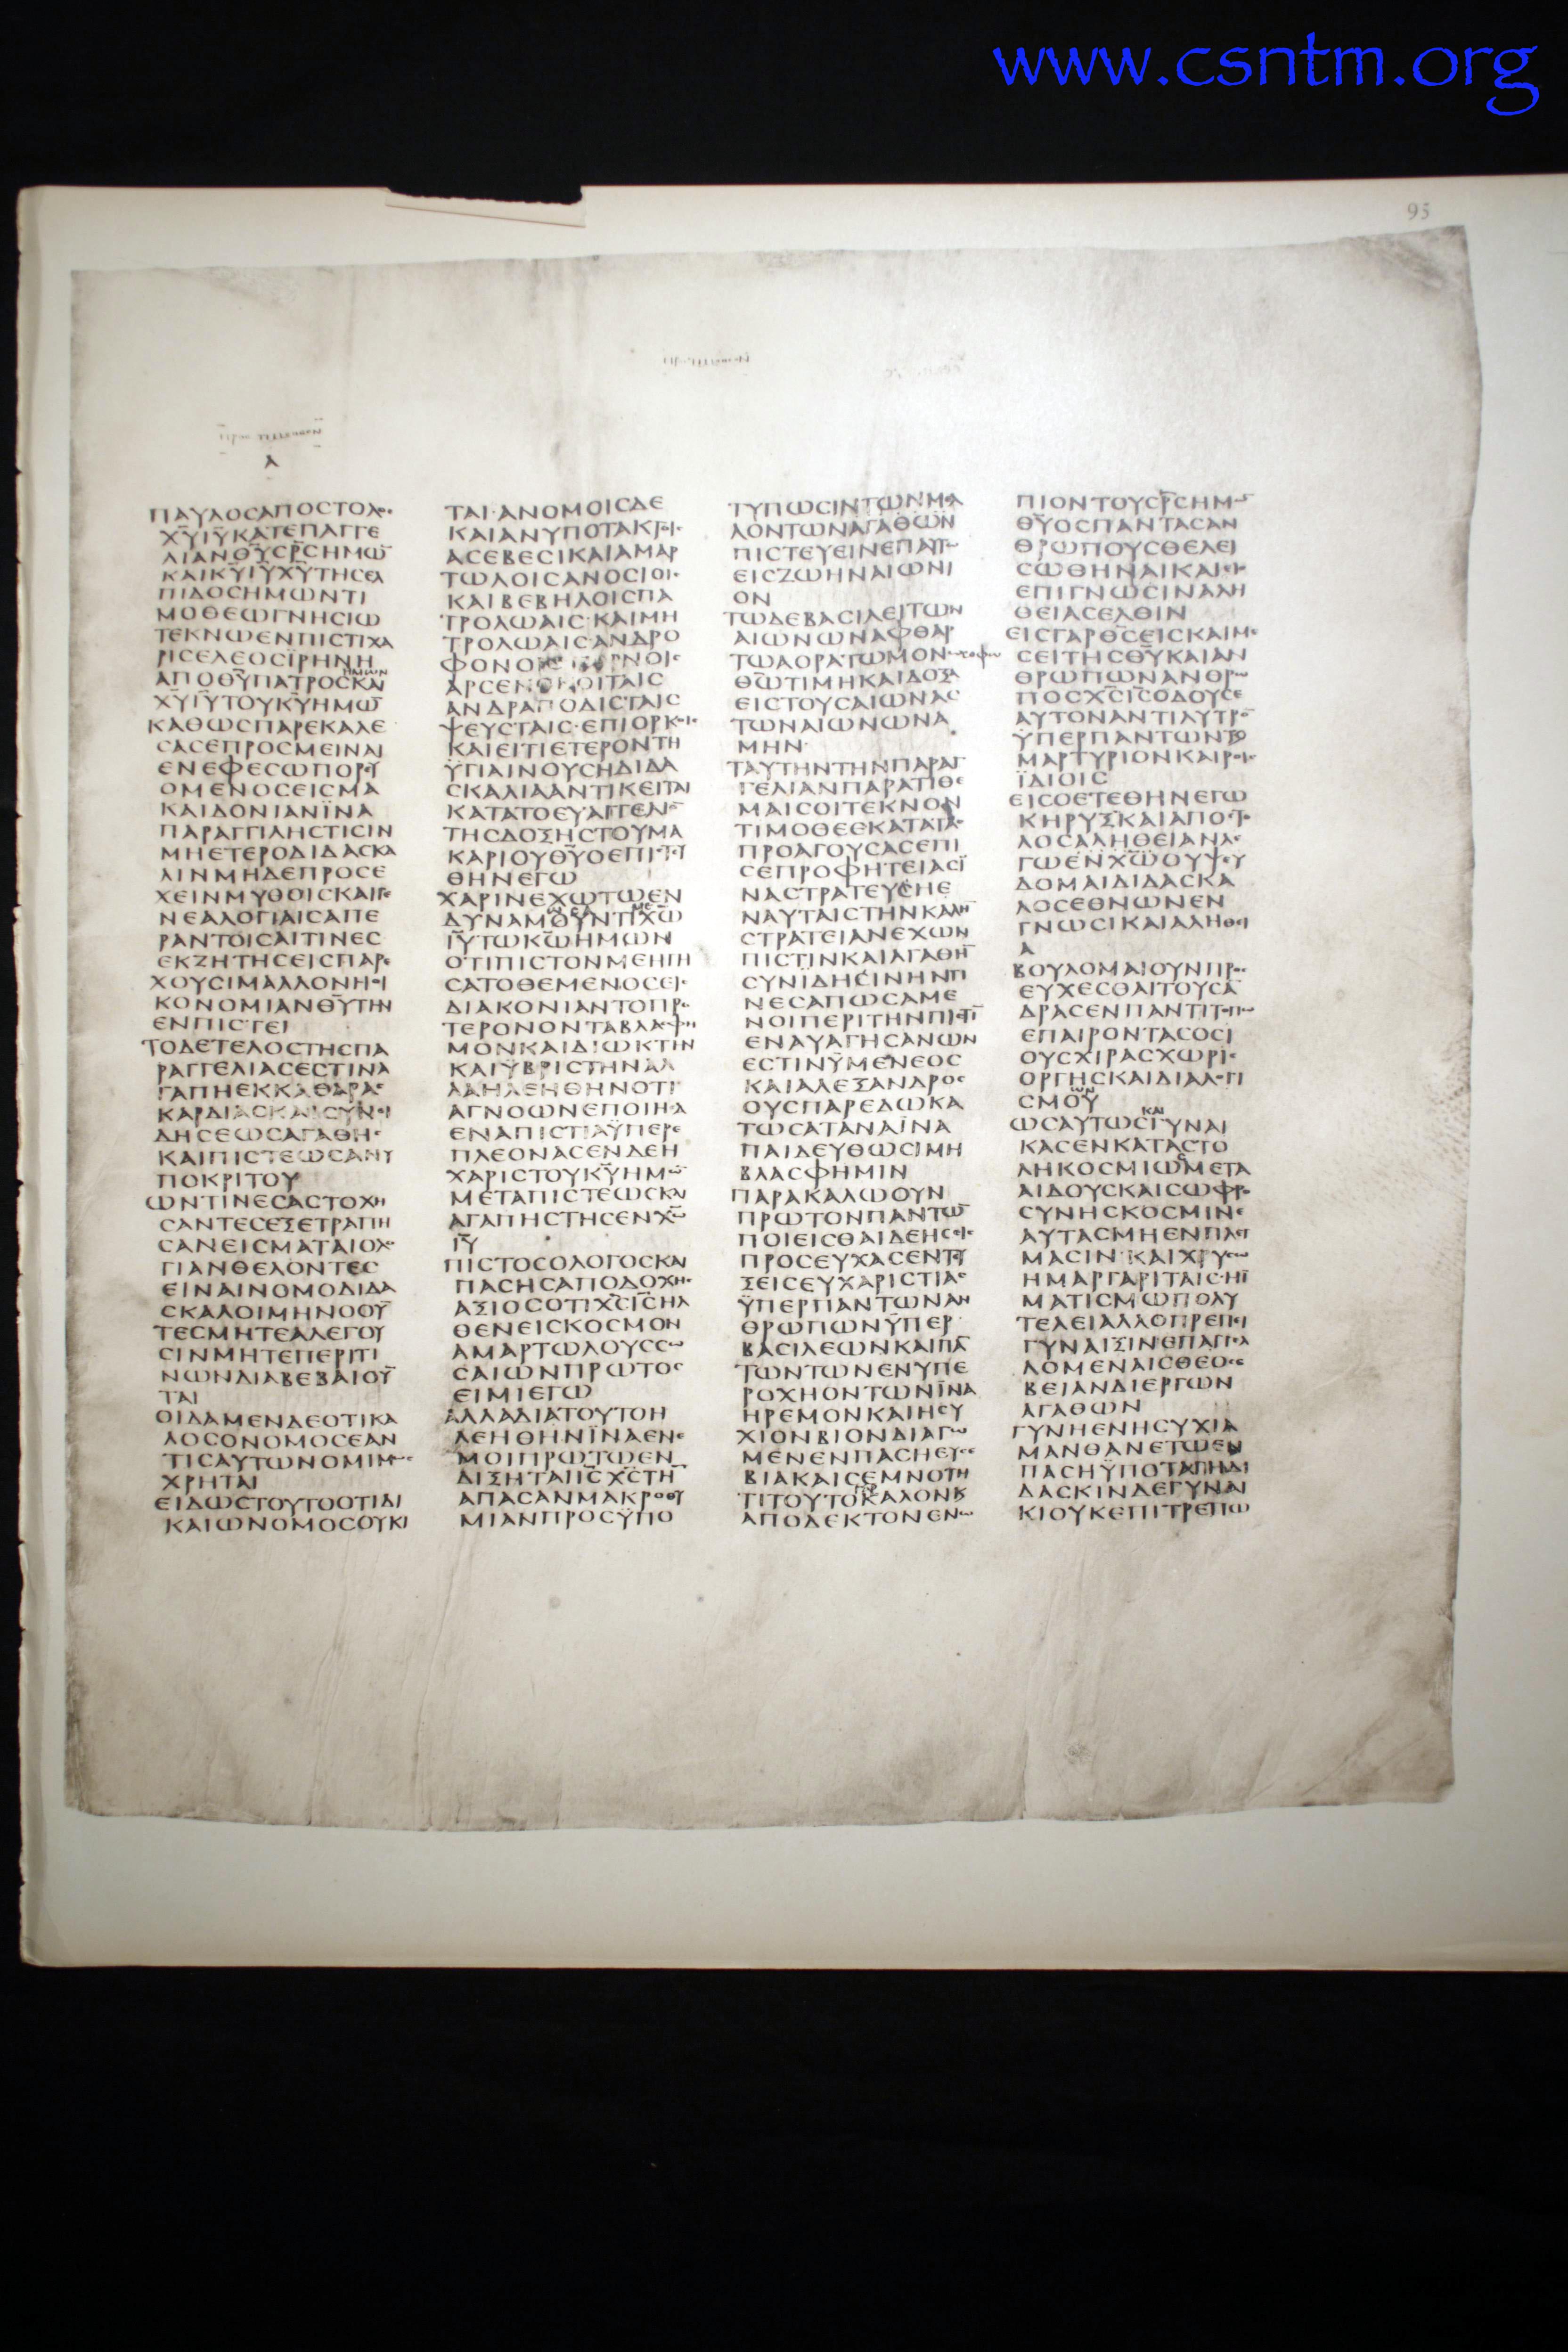 www.csntm.org
95
Α
ΠΑΥΛΟCΑΠΟCΤΟΛΟC
ΧΥΙΥΚΑΤΕΠΑΓΓΕ
ΛΙΑΝΘΥCΡCΗΜΩ̅
ΚΑΙΚΥΙΥΧΥΤΗCΕΛ
ΠΙΔΟCΗΜΩΝΤΙ
ΜΟΘΕΩΓΝΗCΙΩ
ΤΕΚΝΩΕΝΠΙCΤΙΧΑ
ΡΙCΕΛΕΟCΪΡΗΝΗ
ΗΜΩΝ
ΑΠΟΘΥΠΑΤΡΟCΚΑΙ
ΧΥΙΥΤΟΥΚΥΗΜΩ̅
ΚΑΘΩCΠΑΡΕΚΑΛΕ
CΑCΕΠΡΟCΜΕΙΝΑΙ
ΕΝΕΦΕCΩΠΟΡΕΥ
ΟΜΕΝΟCΕΙCΜΑ
ΚΑΙΔΟΝΙΑΝΪΝΑ
ΠΑΡΑΓΓΙΛΗCΤΙCΙΝ
ΜΗΕΤΕΡΟΔΙΔΑCΚΑ
ΛΙΝΜΗΔΕΠΡΟCΕ
ΧΕΙΝΜΥΘΟΙCΚΑΙΓΕ
ΝΕΑΛΟΓΙΑΙCΑΠΕ
ΡΑΝΤΟΙCΑΙΤΙΝΕC
ΕΚΖΗΤΗCΕΙCΠΑΡΕ
ΧΟΥCΙΜΑΛΛΟΝΗΟΙ
ΚΟΝΟΜΙΑΝΘΥΤΗΝ
ΕΝΠΙCΤΕΙ
ΤΟΔΕΤΕΛΟCΤΗCΠΑ
ΡΑΓΓΕΛΙΑCΕCΤΙΝΑ
ΓΑΠΗΕΚΚΑΘΑΡΑC
ΚΑΡΔΙΑCΚΑΙCΥΝΙ
ΔΗCΕΩCΑΓΑΘΗC
ΚΑΙΠΙCΤΕΩCΑΝΥ
ΠΟΚΡΙΤΟΥ
ΩΝΤΙΝΕCΑCΤΟΧΗ
CΑΝΤΕCΕΞΕΤΡΑΠΗ
CΑΝΕΙCΜΑΤΑΙΟΛΟ
ΓΙΑΝΘΕΛΟΝΤΕC
ΕΙΝΑΙΝΟΜΟΔΙΔΑ
CΚΑΛΟΙΜΗΝΟΟΥ̅
ΤΕCΜΗΤΕΑΛΕΓΟΥ
CΙΝΜΗΤΕΠΕΡΙΤΙ
ΝΩΝΔΙΑΒΕΒΑΙΟΥ̅
ΤΑΙ
ΟΙΔΑΜΕΝΔΕΟΤΙΚΑ
ΛΟCΟΝΟΜΟCΕΑΝ
ΤΙCΑΥΤΩΝΟΜΙΜΩC
ΧΡΗΤΑΙ
ΕΙΔΩCΤΟΥΤΟΟΤΙΔΙ
ΚΑΙΩΝΟΜΟCΟΥΚΙ
ΤΑΙ·ΑΝΟΜΟΙCΔΕ
ΚΑΙΑΝΥΠΟΤΑΚΤΟΙC
ΑCΕΒΕCΙΚΑΙΑΜΑΡ
ΤΩΛΟΙCΑΝΟCΙΟΙC
ΚΑΙΒΕΒΗΛΟΙCΠΑ
ΤΡΟΛΩΑΙC·ΚΑΙΜΗ
ΤΡΟΛΩΑΙC·ΑΝΔΡΟ
ΑΡCΕΝΟΚΟΙΤΑΙC
ΑΝΔΡΑΠΟΔΙCΤΑΙC
ΨΕΥCΤΑΙC·ΕΠΙΟΡΚΟΙC
ΚΑΙΕΙΤΙΕΤΕΡΟΝΤΗ
ΫΓΙΑΙΝΟΥCΗΔΙΔΑ
CΚΑΛΙΑΑΝΤΙΚΕΙΤΑΙ
ΚΑΤΑΤΟΕΥΑΓΓΕΛΙΟ̅
ΤΗCΔΟΞΗCΤΟΥΜΑ
ΚΑΡΙΟΥΘΥΟΕΠΙCΤΕΥ
ΘΗΝΕΓΩ
ΧΑΡΙΝΕΧΩΤΩΕΝ
ΔΥΝΑΜΟΥΝΤΙΧΩ
ΙΥΤΩΚΩΗΜΩΝ
ΟΤΙΠΙCΤΟΝΜΕΗΓΗ
CΑΤΟΘΕΜΕΝΟCΕΙC
ΔΙΑΚΟΝΙΑΝΤΟΠΡΟ
ΤΕΡΟΝΟΝΤΑΒΛΑCΦΗ
ΜΟΝΚΑΙΔΙΩΚΤΗΝ
ΚΑΙΫΒΡΙCΤΗΝΑΛ
ΛΑΗΛΕΗΘΗΝΟΤΙ
ΑΓΝΟΩΝΕΠΟΙΗCΑ
ΕΝΑΠΙCΤΙΑΫΠΕΡΕ
ΠΛΕΟΝΑCΕΝΔΕΗ
ΧΑΡΙCΤΟΥΚΥΗΜΩ̅
ΜΕΤΑΠΙCΤΕΩCΚΑΙ
ΑΓΑΠΗCΤΗCΕΝΧΩ
ΙΥ
ΠΙCΤΟCΟΛΟΓΟCΚΑΙ
ΠΑCΗCΑΠΟΔΟΧΗC
ΑΞΙΟCΟΤΙΧCΙCΗΛ
ΘΕΝΕΙCΚΟCΜΟΝ
ΑΜΑΡΤΩΛΟΥCCΩ
CΑΙΩΝΠΡΩΤΟC
ΕΙΜΙΕΓΩ
ΑΛΛΑΔΙΑΤΟΥΤΟΗ
ΛΕΗΘΗΝΪΝΑΕΝΕ
ΜΟΙΠΡΩΤΩΕΝ
ΔΙΞΗΤΑΙΙCΧCΤΗ̅
ΑΠΑCΑΝΜΑΚΡΟΘΥ
ΜΙΑΝΠΡΟCΫΠΟ
ΤΥΠΩCΙΝΤΩΝΜΕΛ
ΛΟΝΤΩΝΑΓΑΘΩΝ
ΠΙCΤΕΥΕΙΝΕΠΑΥΤΩ
ΕΙCΖΩΗΝΑΙΩΝΙ
ΟΝ
ΤΩΔΕΒΑCΙΛΕΙΤΩΝ
ΑΙΩΝΩΝΑΦΘΑΡ
ΤΩΑΟΡΑΤΩΜΟΝΩCΟΦΩ
ΘΩΤΙΜΗΚΑΙΔΟΞΑ
ΕΙCΤΟΥCΑΙΩΝΑC
ΤΩΝΑΙΩΝΩΝΑ
ΜΗΝ·
ΤΑΥΤΗΝΤΗΝΠΑΡΑΓ
ΓΕΛΙΑΝΠΑΡΑΤΙΘΕ
ΜΑΙCΟΙΤΕΚΝΟΝ
ΤΙΜΟΘΕΕΚΑΤΑΤΑC
ΠΡΟΑΓΟΥCΑCΕΠΙ
CΕΠΡΟΦΗΤΕΙΑCΪ
ΝΑCΤΡΑΤΕΥCΗΕ
ΝΑΥΤΑΙCΤΗΝΚΑΛΗ̅
CΤΡΑΤΕΙΑΝΕΧΩΝ
ΠΙCΤΙΝΚΑΙΑΓΑΘΗ̅
CΥΝΪΔΗCΙΝΗΝΤΙ
ΝΕCΑΠΩCΑΜΕ
ΝΟΙΠΕΡΙΤΗΝΠΙCΤΙ̅
ΕΝΑΥΑΓΗCΑΝΩΝ
ΕCΤΙΝΫΜΕΝΕΟC
ΚΑΙΑΛΕΞΑΝΔΡΟC
ΟΥCΠΑΡΕΔΩΚΑ
ΤΩCΑΤΑΝΑΪΝΑ
ΠΑΙΔΕΥΘΩCΙΜΗ
ΒΛΑCΦΗΜΙΝ
ΠΑΡΑΚΑΛΩΟΥΝ
ΠΡΩΤΟΝΠΑΝΤΩ̅
ΠΟΙΕΙCΘΑΙΔΕΗCΕΙC
ΠΡΟCΕΥΧΑCΕΝΤΕΥ
ΞΕΙCΕΥΧΑΡΙCΤΙΑC
ΫΠΕΡΠΑΝΤΩΝΑΝ
ΘΡΩΠΩΝΫΠΕΡ
ΒΑCΙΛΕΩΝΚΑΙΠΑ̅
ΤΩΝΤΩΝΕΝΥΠΕ
ΡΟΧΗΟΝΤΩΝΪΝΑ
ΗΡΕΜΟΝΚΑΙΗCΥ
ΧΙΟΝΒΙΟΝΔΙΑΓΩ
ΜΕΝΕΝΠΑCΗΕΥCΕ
ΒΙΑΚΑΙCΕΜΝΟΤΗ
ΤΙΤΟΥΤΟΚΑΛΟΝΚ
ΑΠΟΔΕΚΤΟΝΕΝΩ
ΠΙΟΝΤΟΥCΡCΗΜΩ̅
ΘΥΟCΠΑΝΤΑCΑΝ
ΘΡΩΠΟΥCΘΕΛΕΙ
CΩΘΗΝΑΙΚΑΙΕΙC
ΕΠΙΓΝΩCΙΝΑΛΗ
ΘΕΙΑCΕΛΘΙΝ
ΕΙCΓΑΡΘCΕΙCΚΑΙΜΕ
CΕΙΤΗCΘΥΚΑΙΑΝ
ΘΡΩΠΩΝΑΝΘΡΩ
ΠΟCΧCΙCΟΔΟΥCΕ
ΑΥΤΟΝΑΝΤΙΛΥΤΡΟ̅
ΫΠΕΡΠΑΝΤΩΝΤΟ
ΜΑΡΤΥΡΙΟΝΚΑΙΡΟΙC
ΪΔΙΟΙC
ΕΙCΟΕΤΕΘΗΝΕΓΩ
ΚΗΡΥΞΚΑΙΑΠΟCΤΟ
ΛΟCΑΛΗΘΕΙΑΝΛΕ
ΓΩΕΝΧΩΟΥΨΕΥ
ΔΟΜΑΙΔΙΔΑCΚΑ
ΛΟCΕΘΝΩΝΕΝ
ΓΝΩCΙΚΑΙΑΛΗΘΕΙ
Α
ΒΟΥΛΟΜΑΙΟΥΝΠΡΟC
ΕΥΧΕCΘΑΙΤΟΥCΑ̅
ΔΡΑCΕΝΠΑΝΤΙΤΟΠΩ
ΕΠΑΙΡΟΝΤΑCΟCΙ
ΟΥCΧΙΡΑCΧΩΡΙC
ΟΡΓΗCΚΑΙΔΙΑΛΟΓΙ
CΜΟΥ
ΚΑΙ
ΩCΑΥΤΩCΓΥΝΑΙ
ΚΑCΕΝΚΑΤΑCΤΟ
ΛΗΚΟCΜΙΩΜΕΤΑ
ΑΙΔΟΥCΚΑΙCΩΦΡΟ
CΥΝΗCΚΟCΜΙΝΕ
ΑΥΤΑCΜΗΕΝΠΛΕΓ
ΜΑCΙΝ·ΚΑΙΧΡΥCΩ
ΗΜΑΡΓΑΡΙΤΑΙC·ΗΪ
ΜΑΤΙCΜΩΠΟΛΥ
ΤΕΛΕΙΑΛΛΟΠΡΕΠΕΙ
ΓΥΝΑΙΞΙΝΕΠΑΓΓΕΛ
ΛΟΜΕΝΑΙCΘΕΟCΕ
ΒΕΙΑΝΔΙΕΡΓΩΝ
ΑΓΑΘΩΝ
ΓΥΝΗΕΝΗCΥΧΙΑ
ΜΑΝΘΑΝΕΤΩΕΝ
ΠΑCΗΫΠΟΤΑΓΗΔΙ
ΔΑCΚΙΝΔΕΓΥΝΑΙ
ΚΙΟΥΚΕΠΙΤΡΕΠΩ